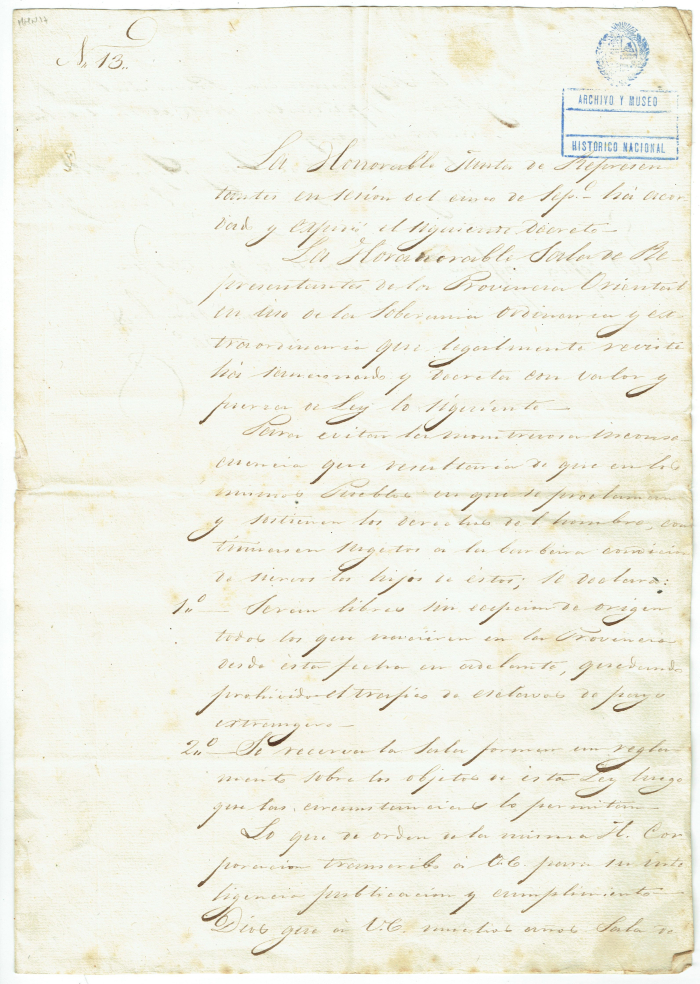 N. 13.
ARCHIVO Y MUSEO
HISTORICO NACIONAL
La Honorable Junta de Represen-
tantes en sesion del cinco de Sepe. ha acor-
dado y el siguiente Decreto.
La Honorable Sala de Re-
presentantes de la Provincia Oriental
en uso de la Soberania ordinaria y ex-
traordinaria que legalmente reviste
há sancionado y decreta con valor y
fuerza de Ley lo siguiente
Para evitar la monstruosa inconse
cuencia que resultaria de que en los
mismos Pueblos en que se proclaman
y sostienen los derechos del hombre, con
tinuasen sugetos a la barbara condicion
de siervos los hijos de estos; se declara:
1.o Seran libres sin de origen
todos los que nacieren en la Provincia
desde esta fecha en adelante, quedando
prohivido el trafico de esclavos de pays
extrangero
2.o Se reserva la Sala formar un regla-
mento sobre los objetos de esta Ley luego
que las circunstancias lo permitan
Lo que de orden de la misma H. Cor
poracion transcribo á V.E. para su inte
ligencia publicacion y cumplimiento
Dios gue. á V.E. muchos años Sala de